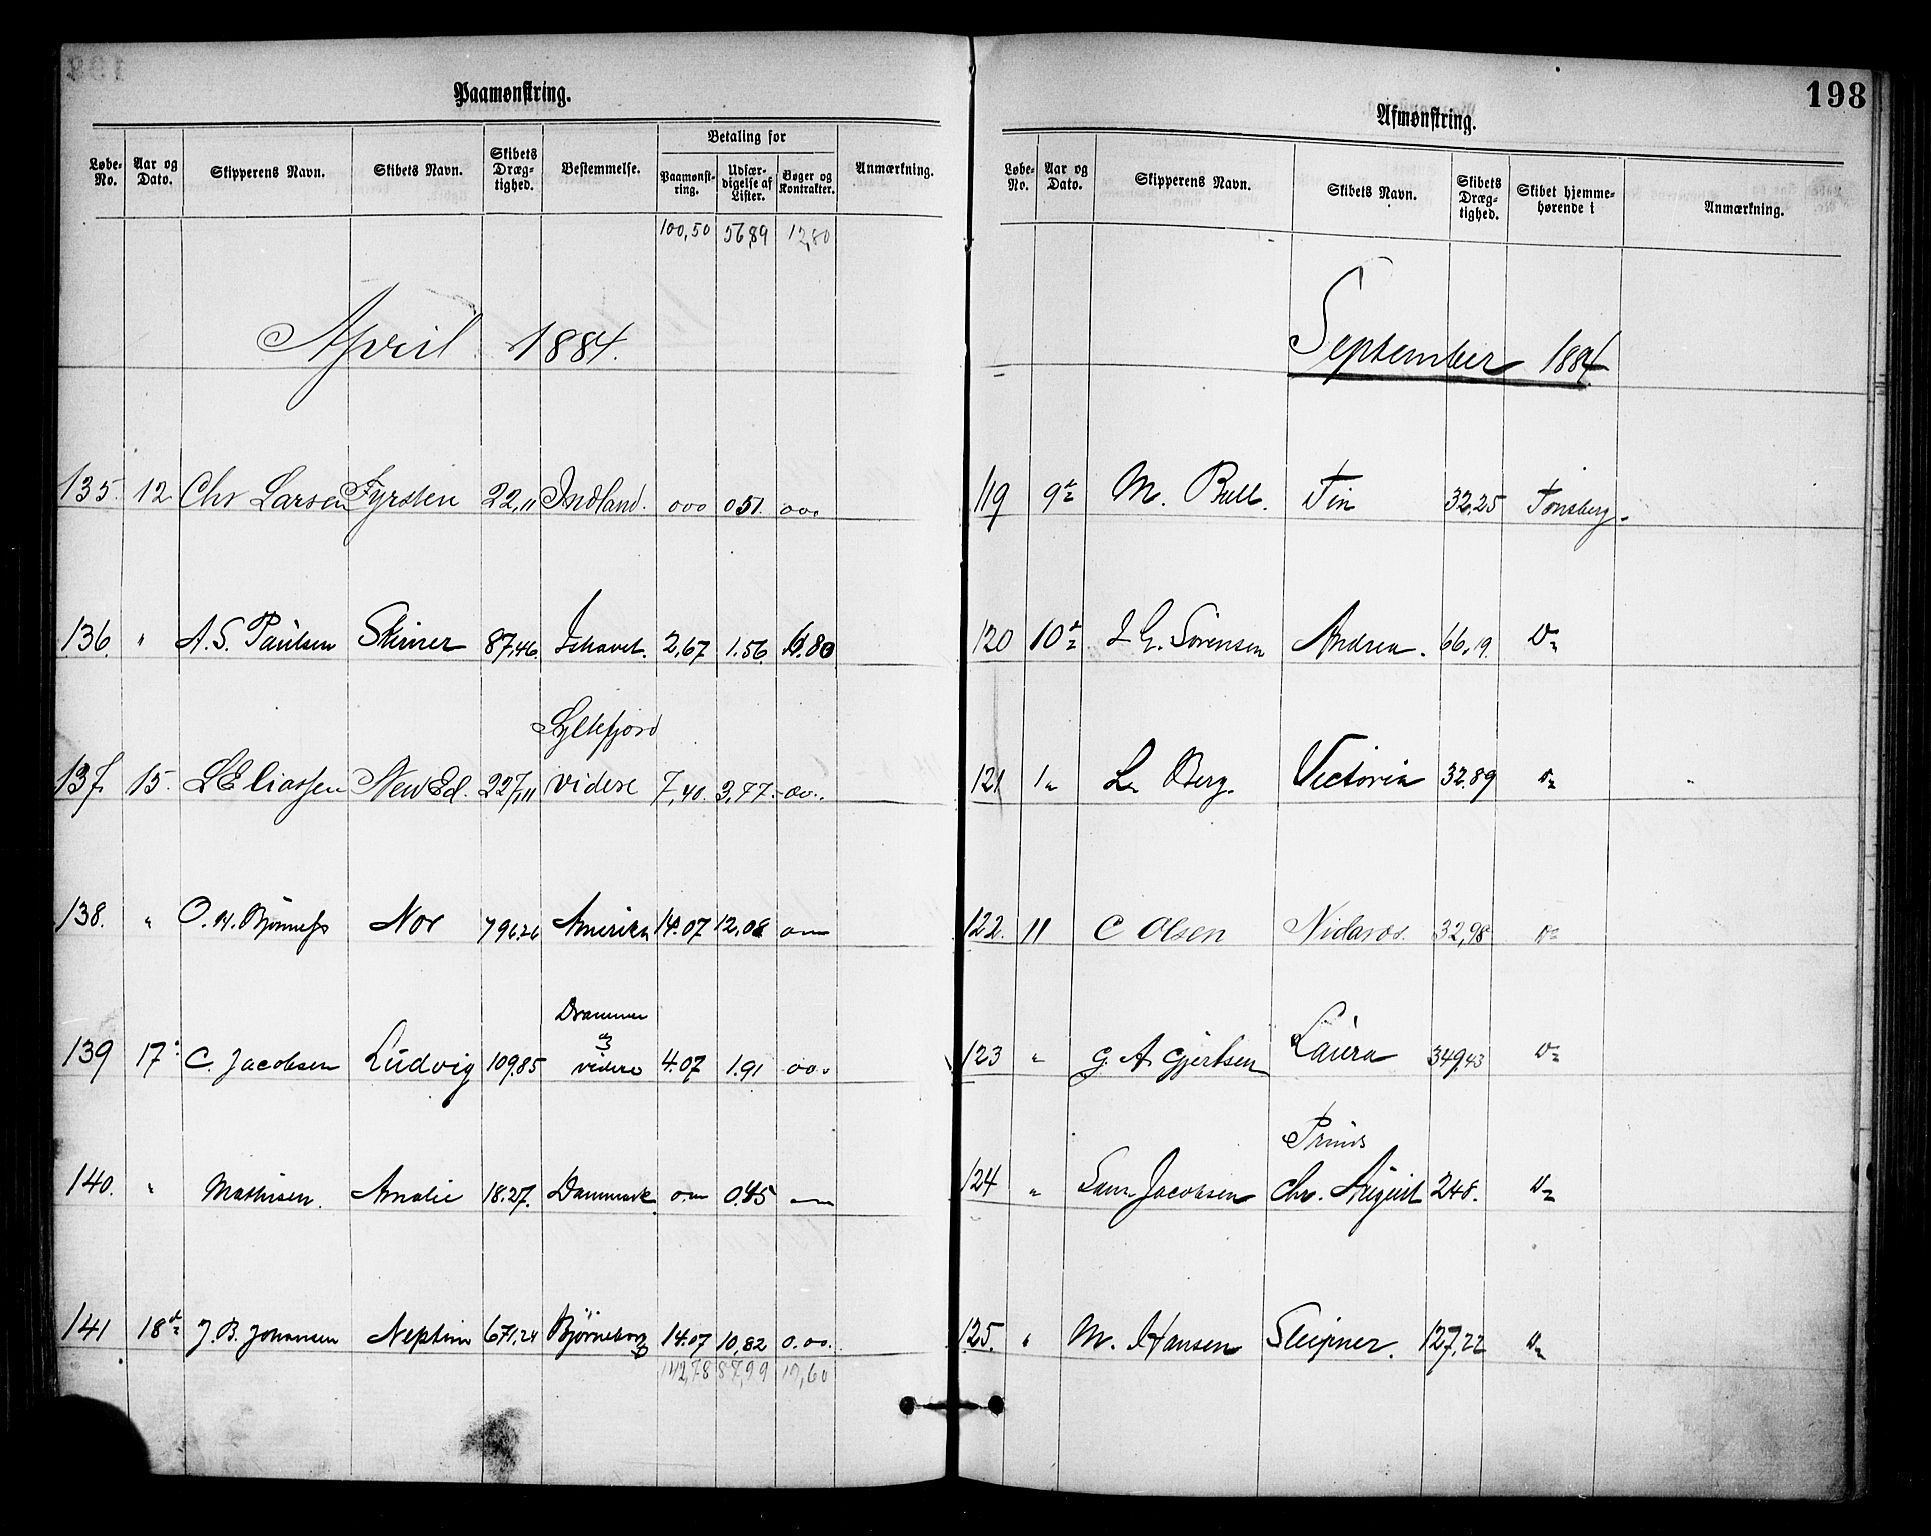 Paamønstring.
Løbe-No. Aar og Dato. Skipperens Navn. Skibets Navn. Skibets Dræg-tighed. Bestemmelse. Betaling for Paamønst-ring. Udfær-digelse af Lister. Bøger og Kontrakter. Anmærkning.
100,50 56,89 12,80
April 1884.
135. 12 Chr Larsen Fyrsten 22,11 Indland. 000 051. 000
136. " A. S. Paulsen Skirner 87,46. Ishavet. 2,67 1.56 0.80
Syltefjord
137. 15. L Eliassen New Ed. 227,11 videre 7,40. 3,77.
138. " O. M. Nor 796.26 Amerika 14.07 12,08
Drammen
og
139 17 C. Jacobsen Ludvig 109.85 videre 4.07 1.91 00.
140. " Mathisen. Amalie 18.27. Danmark. 0.45
141 18 J. B. Johansen Neptun 671,24 Bjørneborg 14.07 10,82 0.00.
142,78 87,99 13,60
198
Afmønstring.
Løbe-No. Aar og Dato. Skipperens Navn. Skibets Navn. Skibets Dræg-tighed. Skibet hjemme-hørende i Anmærkning.
September 1884
119 9 M. Bull. Fin 32,25 Tønsberg
120 10 J G. Sørensen Andrea. 66,19. Do
121 L. Berg. Victoria 32.89 Do
122. 11 C Olsen Nidaros. 32,98 Do
123 " G A Gjertsen Laura 349,43 Do
Prinds
124 " Sam Jacobsen Chr. August 248. Do
125. " M. Hansen Sleipner. 127,22 Do